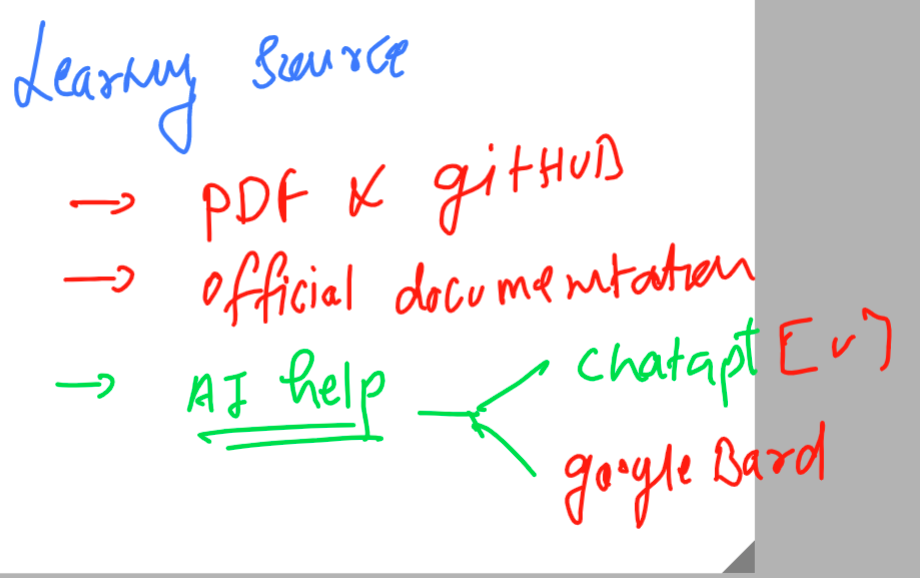 Learning Source
→ PDF & gitHUB
→ official documentation
→ AI help
chatgpt [✓]
google Bard